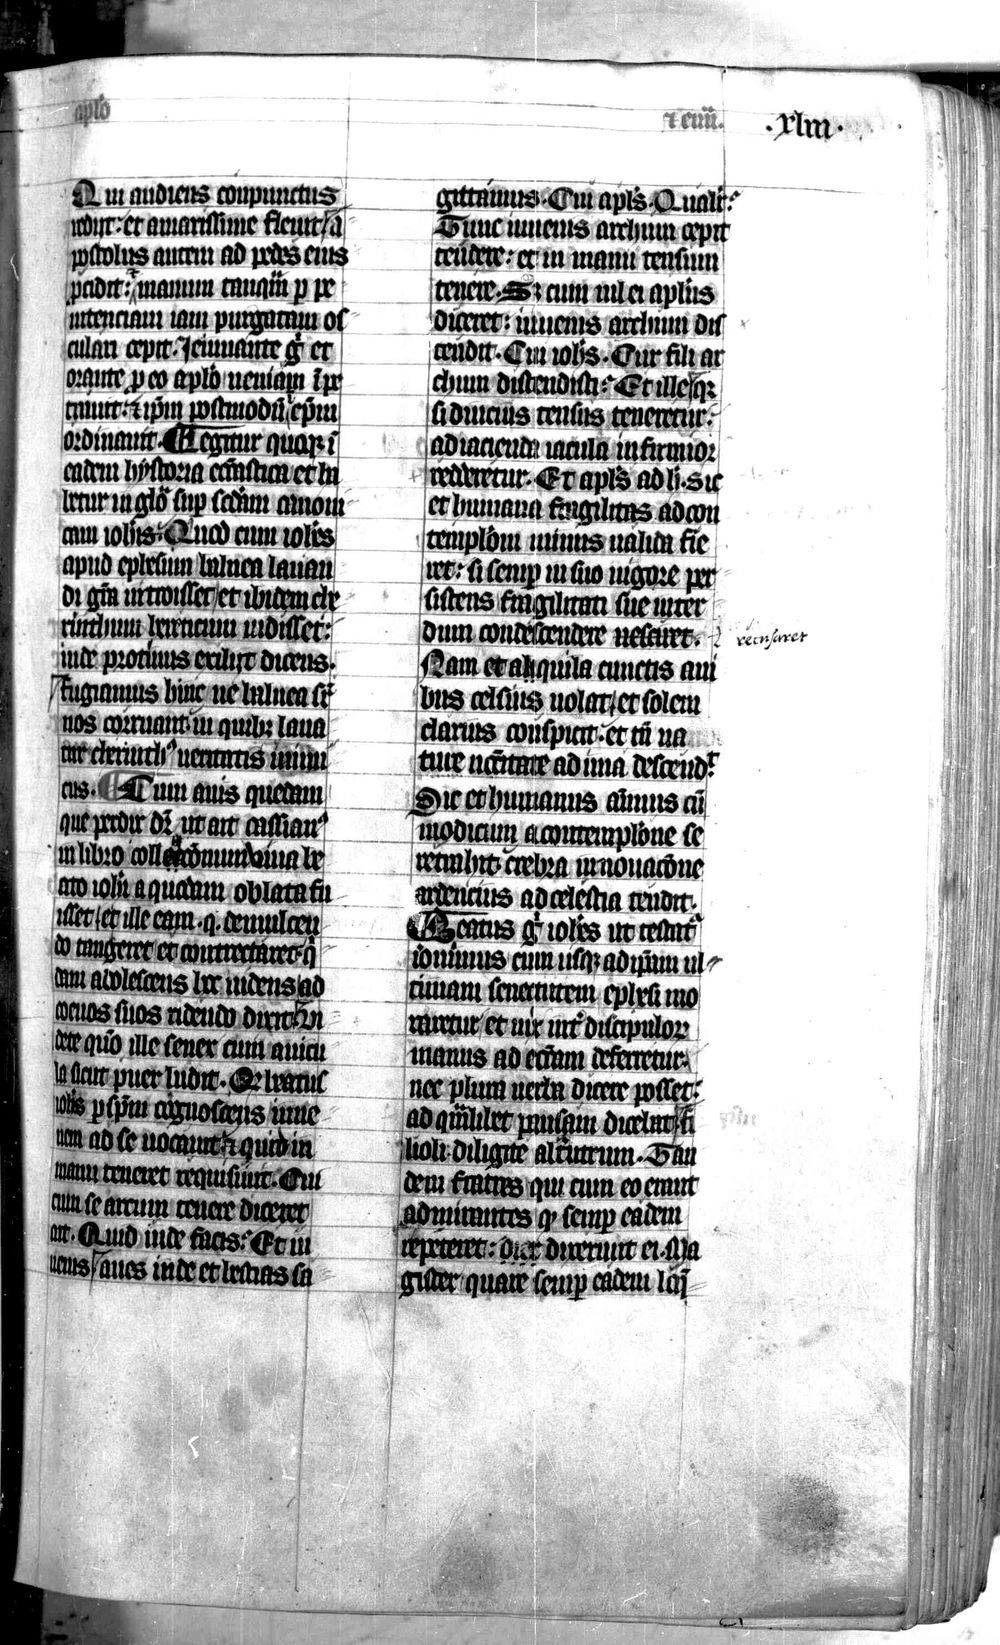 aplo
t ciiii.
·xliii·
Qui audiens conpunctus
rediit: et amarissime fleuit / a
postolus autem ad pedes eius
p̄cidit: ⁊ manum tanqua᷑ p pe
nitenciam iam purgatam os
culari cepit. Ieiunante g̉ et
orante p eo aplo ueniam īpe
trauit: ⁊ ip̄m postmodū ep̄m
ordinauit. Legitur quoqꝫ ī
eadem hystoria ecc̄iastica et ha
betur in glo᷑ sup sc̄dam canoni
cam ioħis. Quod cum ioħes
apud ephesum balnea lauan
di gr̄a introisset / et ibidem che
rinthum hereticum uidisset:
inde protinus exiliit dicens.
fugiamus hinc ne balnea sr̄
nos corruant in quibꝫ laua
tur cherinthꝰ ueritatis inimi
cus. Cum auis quedam
que perdix dr̄ ut ait cassianꝰ
in libro coll uiua be
ato ioħi a quodam oblata fu
isset / et ille eam .q. demulcen
do tangeret et contrectaret. q̇
dam adolescens hec uidens / ad
coeuos suos ridendo dixit. Vi
dete quō ille senex cum auicu
la sicut puer ludit. Qr̄ beatus
ioħes p sp̄m cognoscens iuue
nem ad se uocauit ⁊ quid in
manu teneret requisiuit. Cui
cum se arcum tenere diceret
ait. Quid inde facis? Et iu
uenis / aues inde et bestias sa
gittamus. Cui apl̄s. Qualit᷑?
Tunc iuuenis archum cepit
tendere: et in manu tensum
tenere. Sꝫ cum nil ei aplus
diceret: iuuenis archum dis
tendit. Cui ioħes. Cur fili ar
chum distendisti? Et ille / qꝫ
si diucius tensus teneretur:
ad iacienda iacula infirmior
redderetur. Et apl̄s ad h̄. Sic
et humana fragilitas ad con
templōm minus ualida fie
ret: si semp in suo uigore per
sistens fragilitati sue inter
dum condescendere nesciret.
recusaret
Nam et aquila cunctis aui
bus celsius uolat / et solem
clarius conspicit. et tn̄ na
ture nec̄itate ad ima descend᷑.
Sic et humanus aīmus cū
modicum a contemplōne se
retrahit. crebra innouacōne
ardencius ad celestia tendit.
Beatus g̉ ioħes ut testat᷑
ieronimus cum usqꝫ ad ip̄am ul
timam senectutem ephesi mo
raretur / et uix int᷑ discipuloꝝ
manus ad eccam deferretur.
nec plura uerba dicere posset:
ad qualibet pausam dicebat / fi
lioli diligite alt᷑utrum. Tan
dem fratres qui cum eo erant
admirantes qꝫ semp eadem
repeteret: dixerunt ei. Ma
gister quare semp eadem loq̄